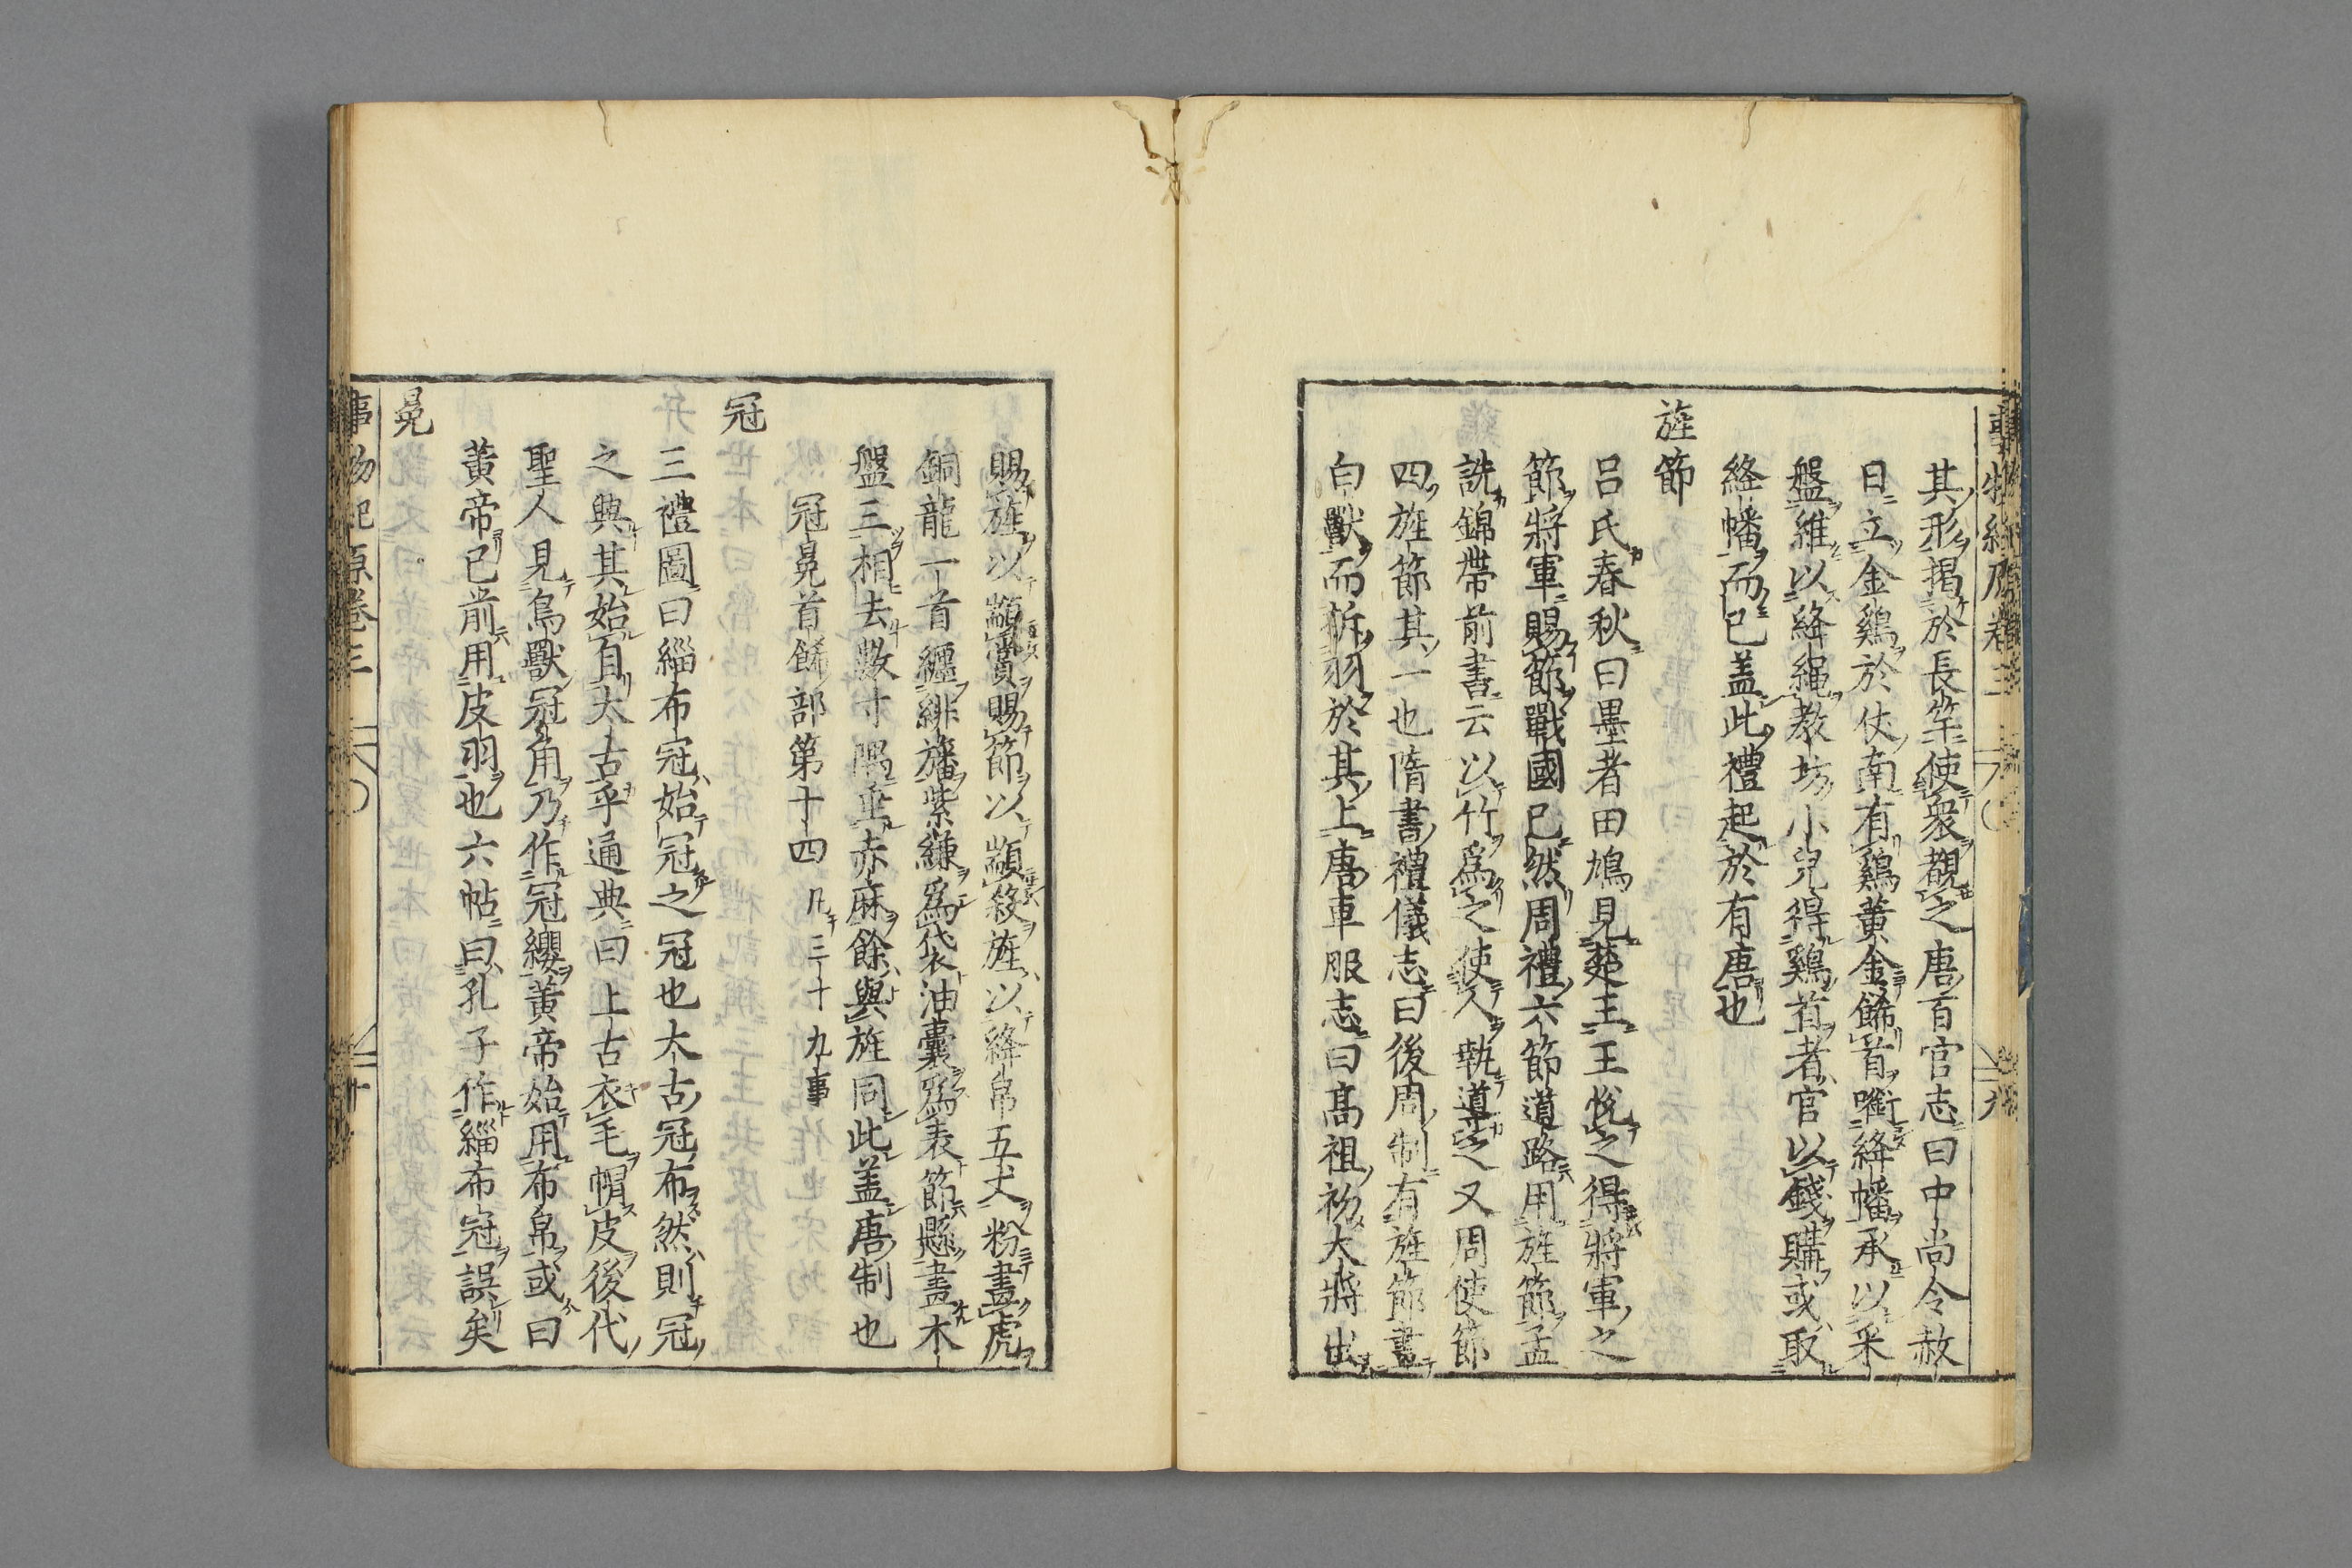 事物紀原卷三
其形揭於長竿使衆覩之唐百官志曰中尚令赦
日立金鷄於仗南有鷄黃金餙首啣絳幡承以釆
盤維以絳繩教坊小兒得鷄首者官以錢購或取
絳幡而已盖此禮起於有唐也
旌節
吕氏春秋曰墨者田鳩見楚王王悅之得將軍之
節將軍賜節戰國已然周禮六節道路用旌節孟
詵錦帶前書云以竹爲之使人執導之又周使節
四旌節其一也隋書禮儀志曰後周制有旌節畫
白獸而析羽於其上唐車服志曰髙祖初大將出
賜旌以顓賞賜節以顓殺旌以絳帛五丈粉畫虎
銅龍一首纏緋旛紫縑爲袋油囊爲表節懸畫木
盤三相去數寸隅垂赤麻餘與旌同此盖唐制也
冠冕首餙部第十四 凡三十九事
冠
三禮圖曰緇布冠始冠之冠也太古冠布然則冠
之興其始自太古乎通典曰上古衣毛帽皮後代
聖人見鳥獸冠角乃作冠纓黃帝始用布帛或曰
黃帝已前用皮羽也六帖曰孔子作緇布冠誤矣
冕
事物紀原卷三 十